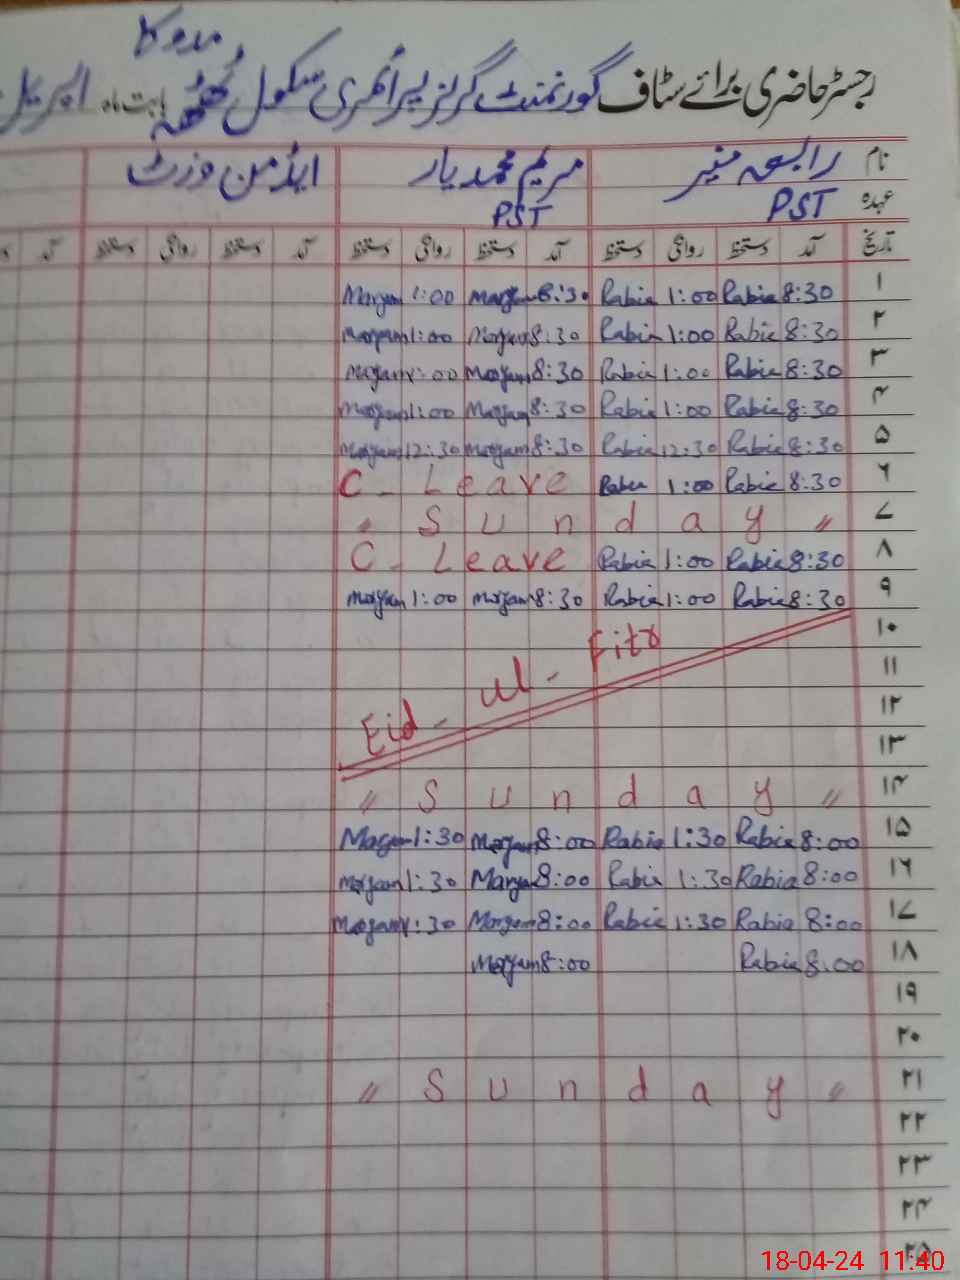 مدوکا
رجسٹر حاضری برائے سٹاف گورنمنٹ گرلز پرائمری سکول ٹھٹھہ بابت ماہ اپریل
نام رابعہ منیر مریم محمد یار ایڈمن وزٹ
عہدہ PST PST
تاریخ آمد دستخط روانگی دستخط آمد دستخط روانگی دستخط آمد دستخط روانگی دستخط آمد
۱ 8:30 Rabia 1:00 Rabia 8:30 Maryam 1:00 Maryam
۲ 8:30 Rabia 1:00 Rabia 8:30 Maryam 1:00 Maryam
۳ 8:30 Rabia 1:00 Rabia 8:30 Maryam 1:00 Maryam
۴ 8:30 Rabia 1:00 Rabia 8:30 Maryam 1:00 Maryam
۵ 8:30 Rabia 12:30 Rabia 8:30 Maryam 12:30 Maryam
۶ 8:30 Rabia 1:00 Rabia C - Leave
۷ " Sunday "
۸ 8:30 Rabia 1:00 Rabia C - Leave
۹ 8:30 Rabia 1:00 Rabia 8:30 Maryam 1:00 Maryam
۱۰
Eid - ul - Fitr
۱۱
۱۲
۱۳
۱۴ " Sunday "
۱۵ 8:00 Rabia 1:30 Rabia 8:00 Maryam 1:30 Maryam
۱۶ 8:00 Rabia 1:30 Rabia 8:00 Maryam 1:30 Maryam
۱۷ 8:00 Rabia 1:30 Rabia 8:00 Maryam 1:30 Maryam
۱۸ 8:00 Rabia 8:00 Maryam
۱۹
۲۰
۲۱ " Sunday "
۲۲
۲۳
۲۴
۲۵
18-04-24 11:40